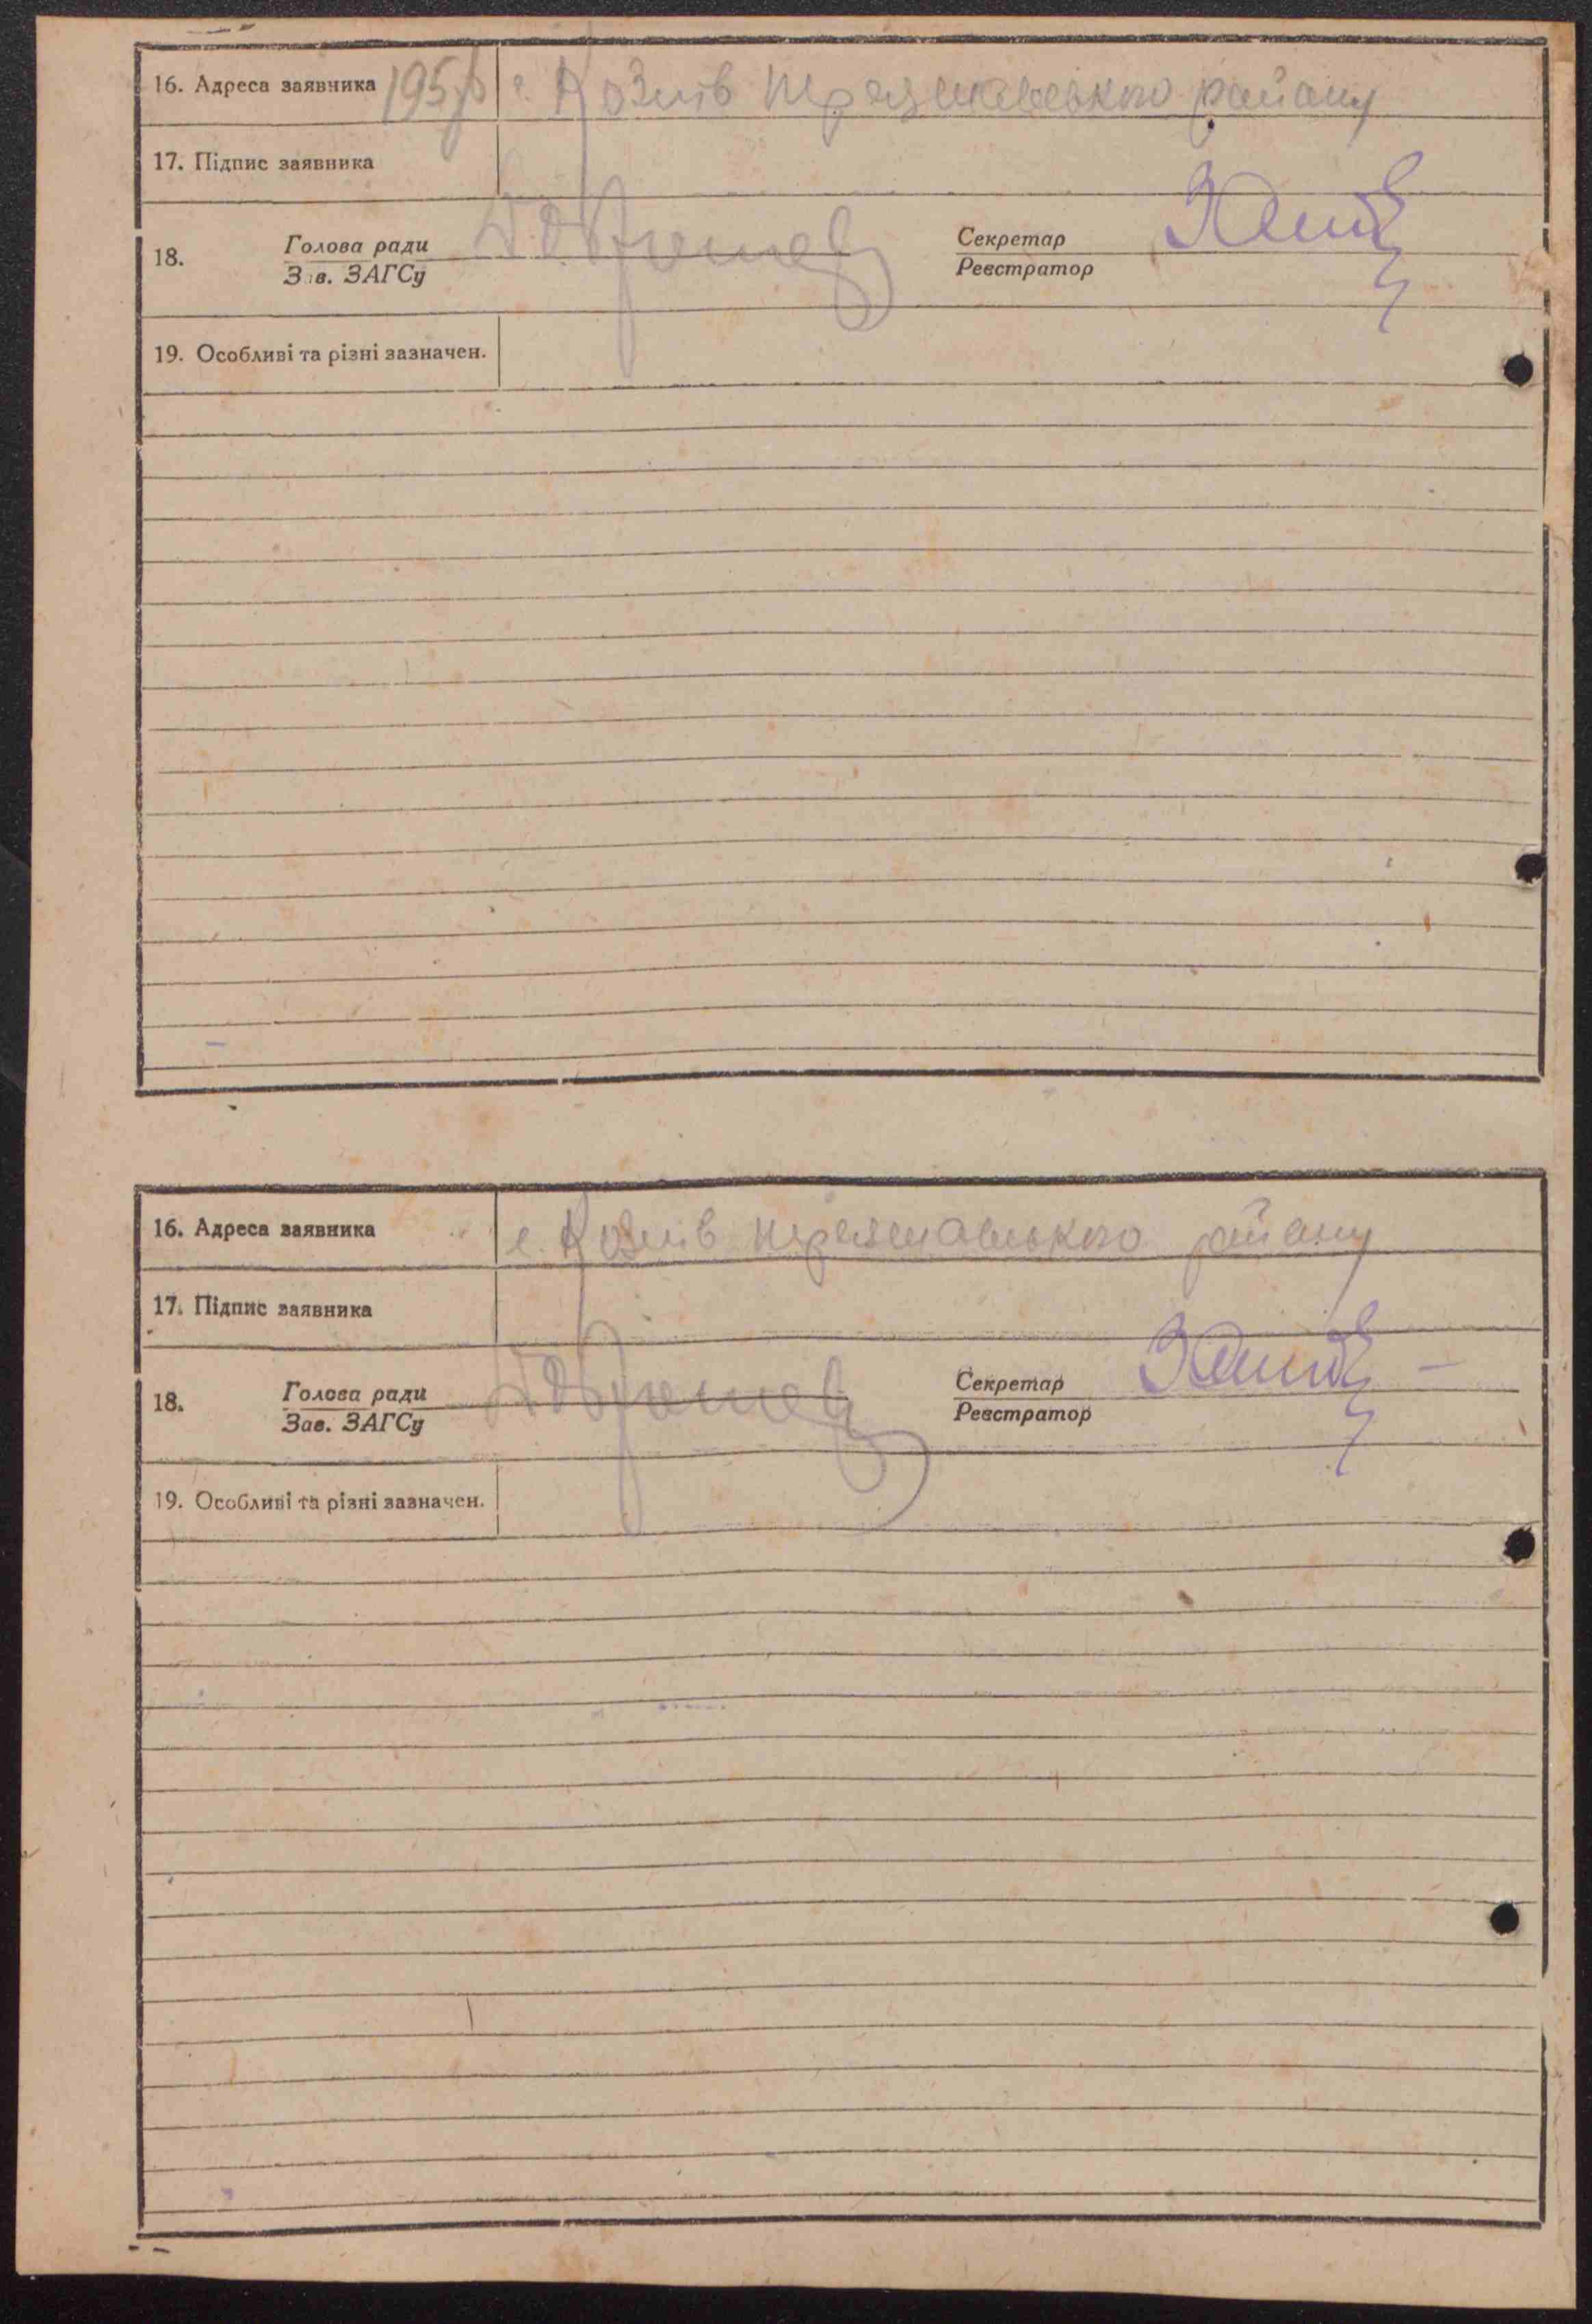 16. Адреса заявника 195 с. Козлів Переяславського району
17. Підпис заявника
18. Голова ради Секретар
Зав. ЗАГСу Реєстратор
19. Особливі та різні зазначен.
16. Адреса заявника с. Козлів Переяславського району
17. Підпис заявника
18. Голова ради Секретар
Зав. ЗАГСу Реєстратор
19. Особливі та різні зазначен.